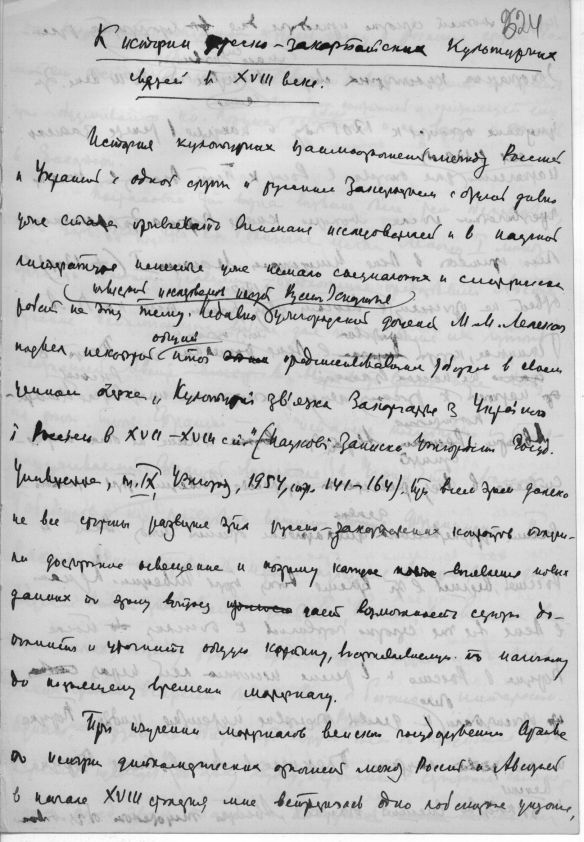 524
К истории русско-закарпатских культурных
связей в XVIII веке.
История культурных взаимоотношений между Россией
и Украиной с одной стороны и русским Закарпатьем с другой давно
уже стала привлекать внимание исследователей и в научной
литературе имеется уже немало специальных и
работ на эту тему. Недавно Ужгородский доцент М. М. Лелекач
общий
подвел некоторый итог предшествовавшим работам в своем
ценном очерке „Культурні зв'язки Закарпаття з Україною
і Россією в XVII–XVIII ст." (Наукові записки Ужгородського Госуд.
Университета, т. IX, Ужгород, 1954, стр. 141–164). При всем этом далеко
не все стороны развития этих русско-закарпатских
достаточное освещение и поэтому каждое выявление новых
данных по этому вопросу дает возможность
и уточнить общую картину,
до настоящему времени материалу.
При изучении материалов венского государственного Архива
по истории дипломатических отношений между Россией и Австрией
в начале XVIII столетия мне встретилось одно любопытное указание,